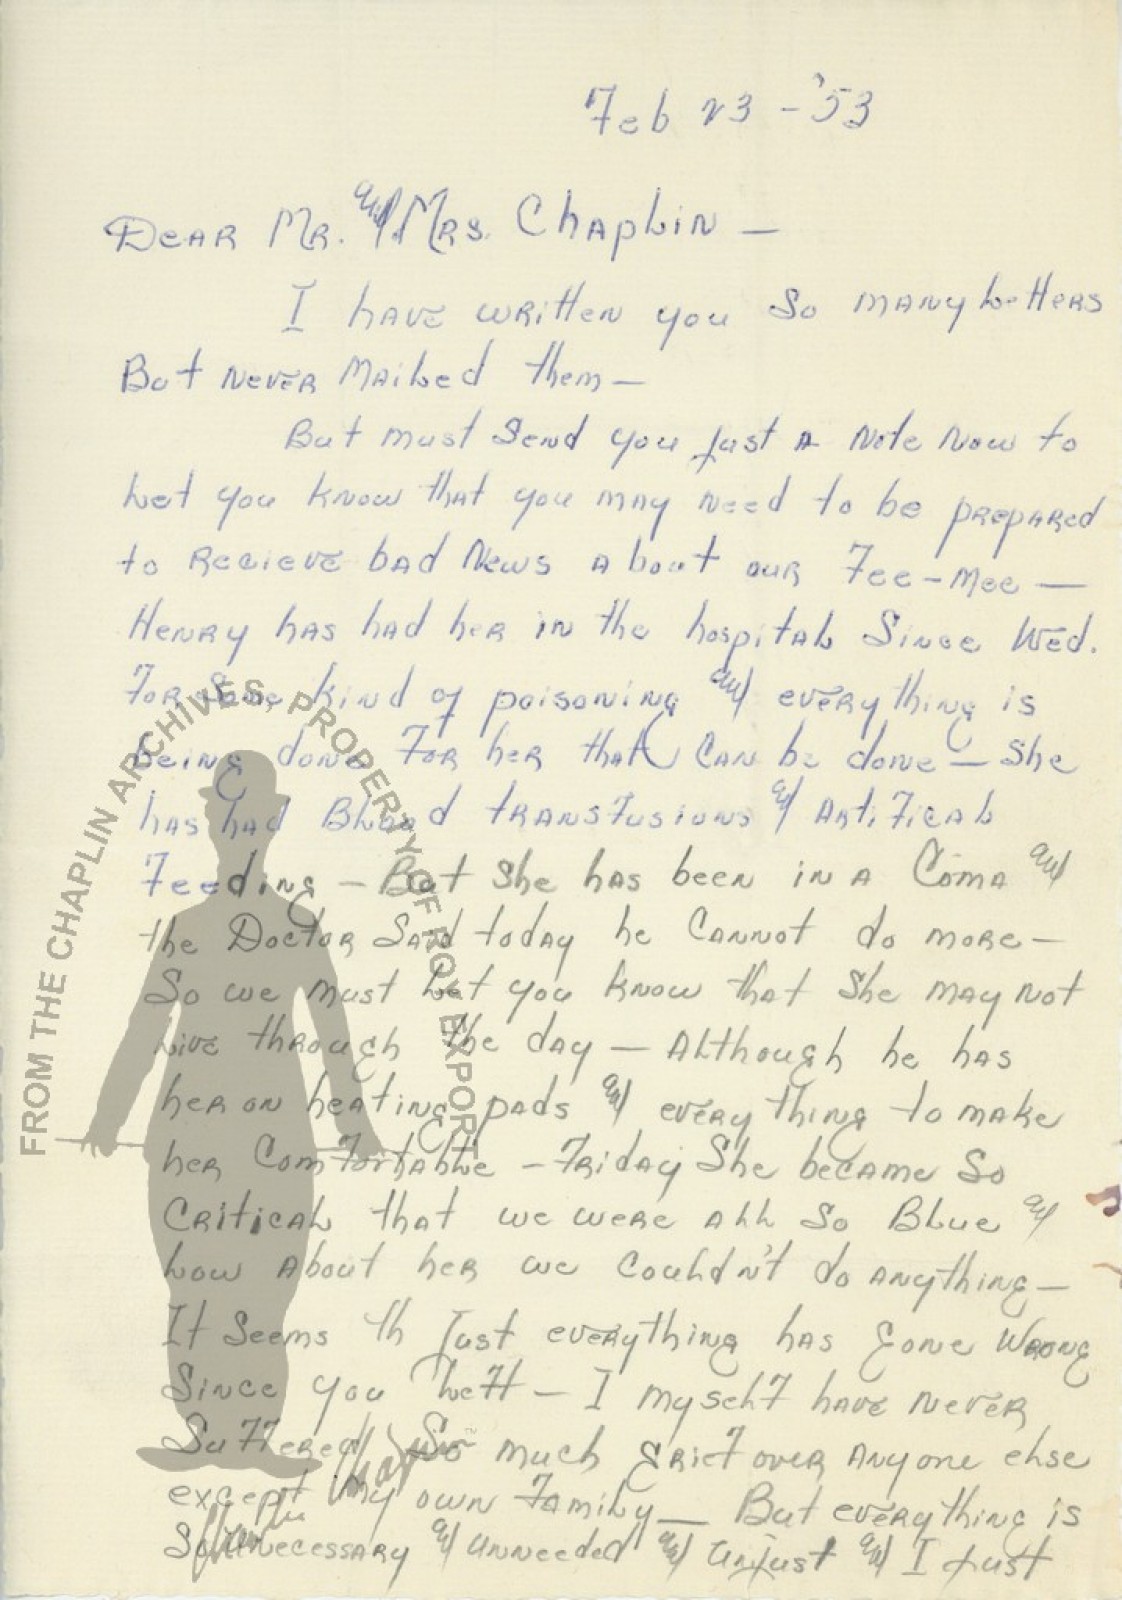 Feb 23 - '53
Dear Mr. and Mrs. Chaplin —
I have written you so many letters
But never mailed them —
But must send you just a note now to
let you know that you may need to be prepared
to recieve bad news about our Fee-mee —
Henry has had her in the hospital since Wed.
For some kind of poisoning and everything is
being done for her that can be done — She
has had Blood transfusions and Artifical
Feeding — But she has been in a Coma and
the Doctor said today he cannot do more —
So we must let you know that she may not
live through the day — Although he has
her on heating pads and everything to make
her comfortable — Friday she became so
critical that we were all so Blue and
low about her we couldn't do anything —
It seems th just everything has gone wrong
since you left — I myself have never
suffered so much grief over anyone else
except my own family — But everything is
so unnecessary and unneeded and unjust and I just
FROM THE CHAPLIN ARCHIVES, PROPERTY OF ROY EXPORT
Charlie Chaplin